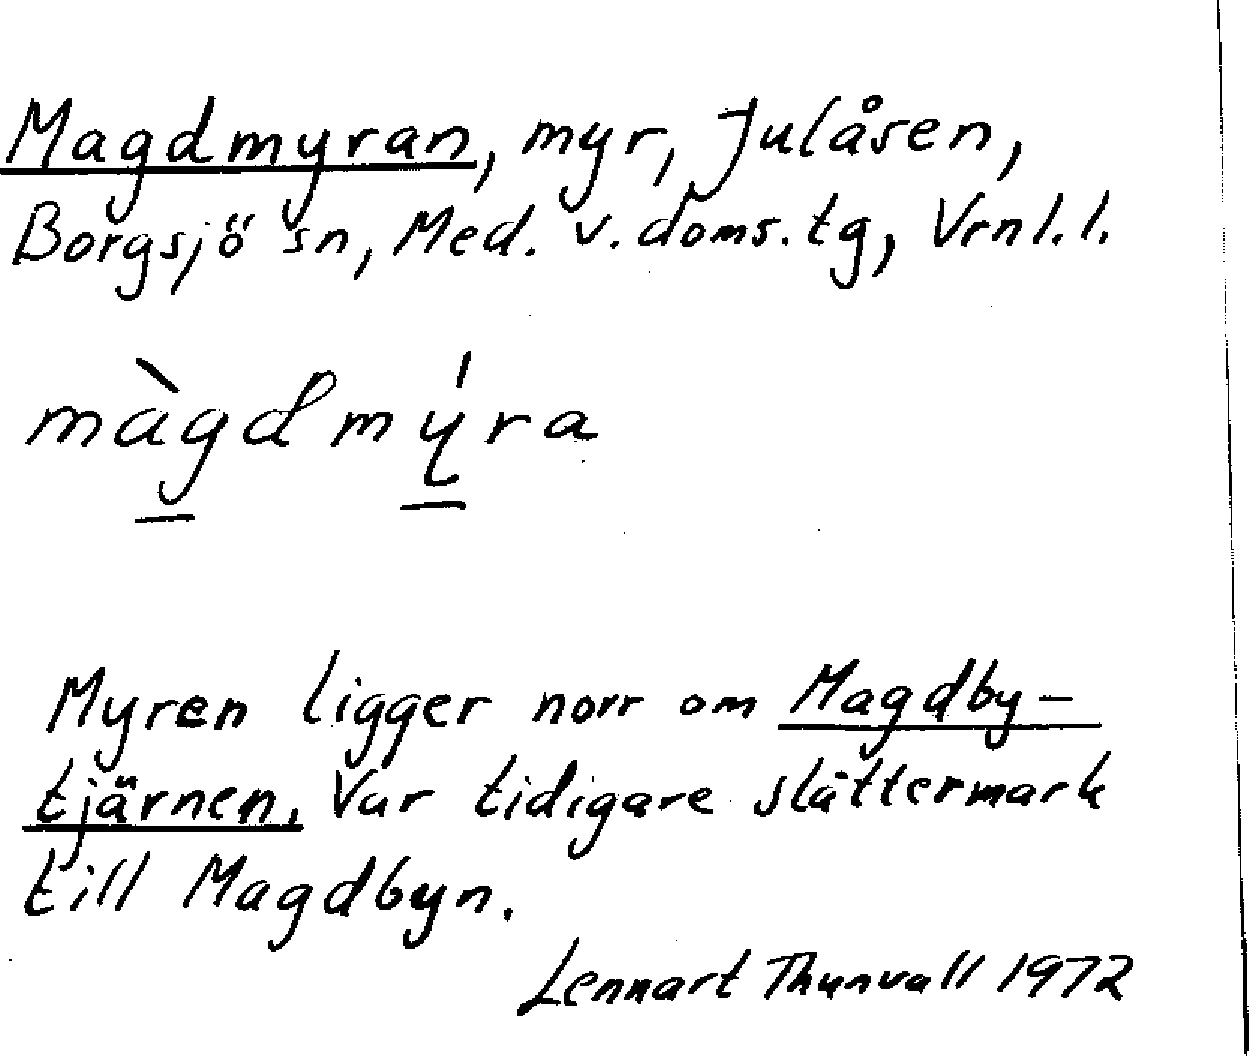 Magdmyran, myr, Julåsen,
Borgsjö sn, Med. v. doms. tg, Vrnl. l.
màgdmýra
Myren ligger norr om Magdby-
tjärnen. Var tidigare slåttermark
till Magdbyn.
Lennart Thunvall 1972